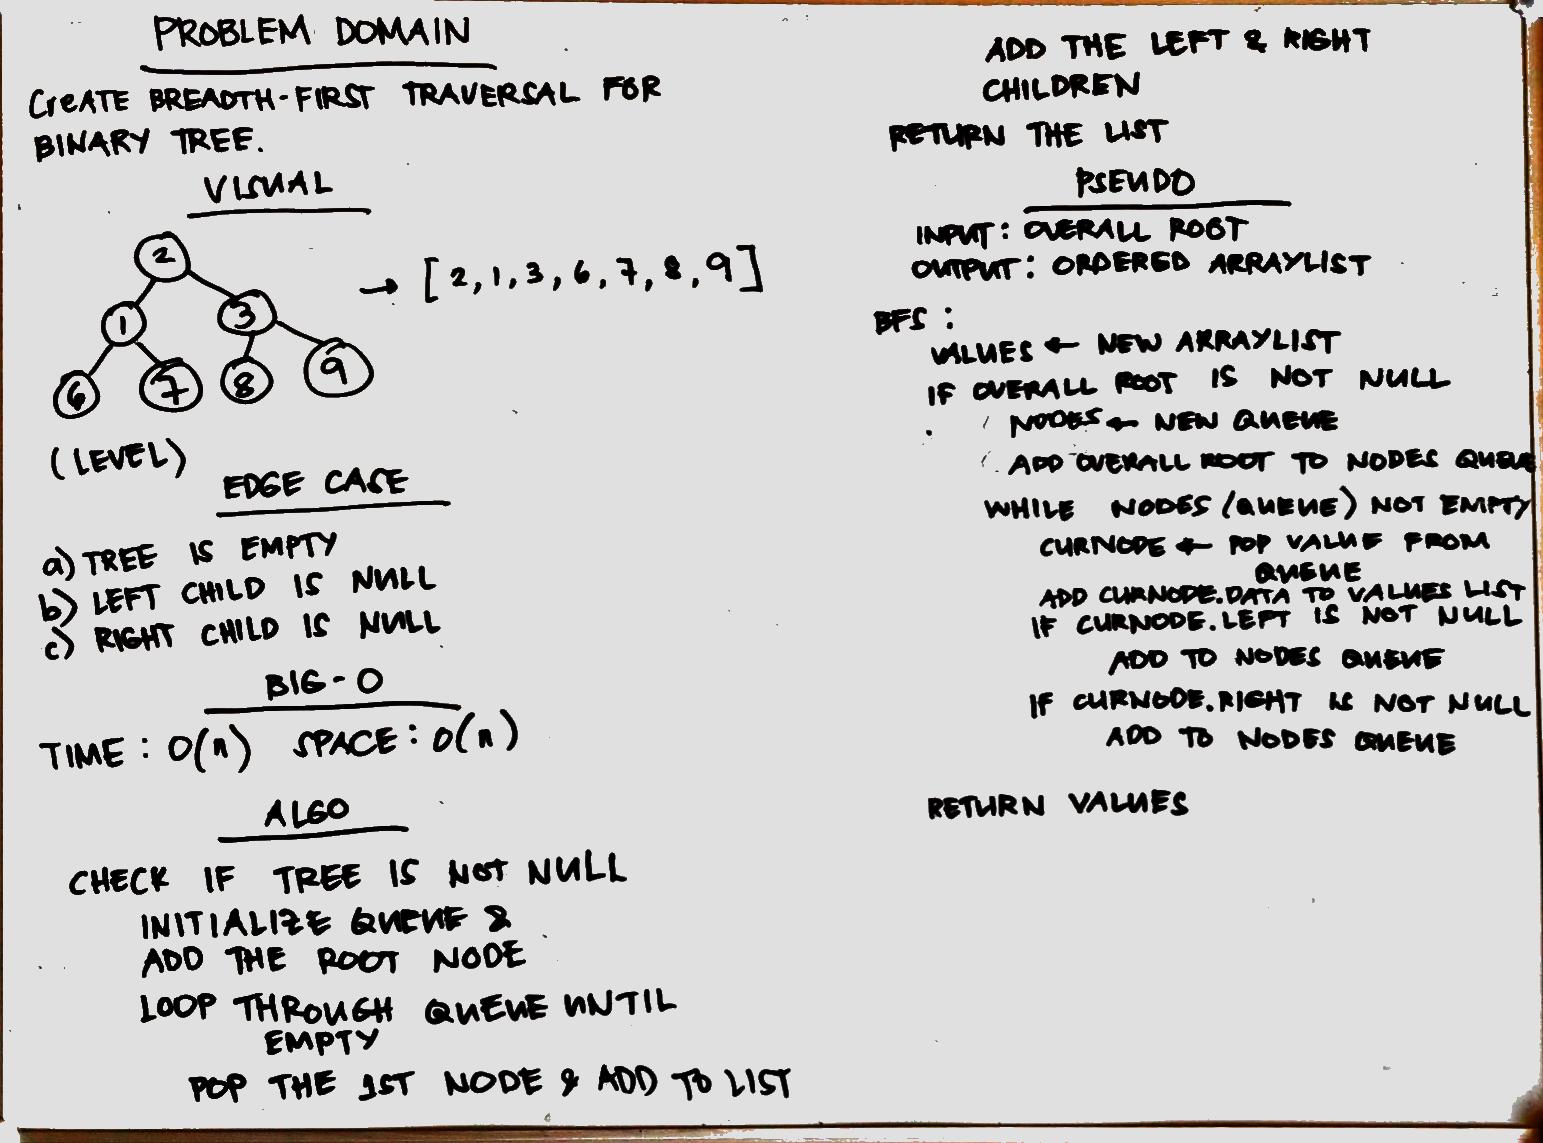 PROBLEM DOMAIN
CREATE BREADTH-FIRST TRAVERSAL FOR
BINARY TREE.
VISUAL
2
1
3
6
7
8
9
→ [2,1,3,6,7,8,9]
(LEVEL)
EDGE CASE
a) TREE IS EMPTY
b) LEFT CHILD IS NULL
c) RIGHT CHILD IS NULL
BIG-O
TIME: O(n) SPACE: O(n)
ALGO
CHECK IF TREE IS NOT NULL
INITIALIZE QUEUE &
ADD THE ROOT NODE
LOOP THROUGH QUEUE UNTIL
EMPTY
POP THE 1ST NODE & ADD TO LIST
ADD THE LEFT & RIGHT
CHILDREN
RETURN THE LIST
PSEUDO
INPUT: OVERALL ROOT
OUTPUT: ORDERED ARRAYLIST
BFS:
VALUES ← NEW ARRAYLIST
IF OVERALL ROOT IS NOT NULL
NODES ← NEW QUEUE
ADD OVERALL ROOT TO NODES QUEUE
WHILE NODES (QUEUE) NOT EMPTY
CURNODE ← POP VALUE FROM
QUEUE
ADD CURNODE.DATA TO VALUES LIST
IF CURNODE.LEFT IS NOT NULL
ADD TO NODES QUEUE
IF CURNODE.RIGHT IS NOT NULL
ADD TO NODES QUEUE
RETURN VALUES